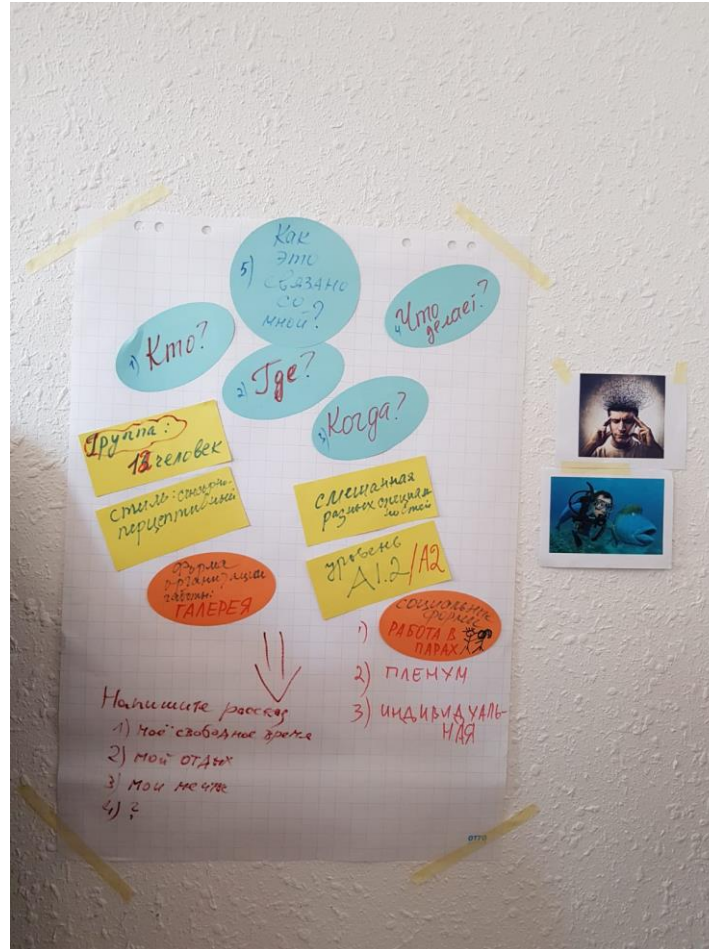 Как
это
5) связано
со
мной?
4) Что
делает?
1) Кто?
2) Где?
3) Когда?
Группа:
12 человек
стиль: сенсорно-
перцептивный
смешанная
разных специаль
ностей
уровень
A1.2/A2
Форма
организации
работы:
ГАЛЕРЕЯ
социальные
формы
1) РАБОТА В
ПАРАХ
2) ПЛЕНУМ
3) ИНДИВИДУАЛЬ-
НАЯ
Напишите рассказ
1) моё свободное время
2) мой отдых
3) мои мечты
4) ?
OTTO